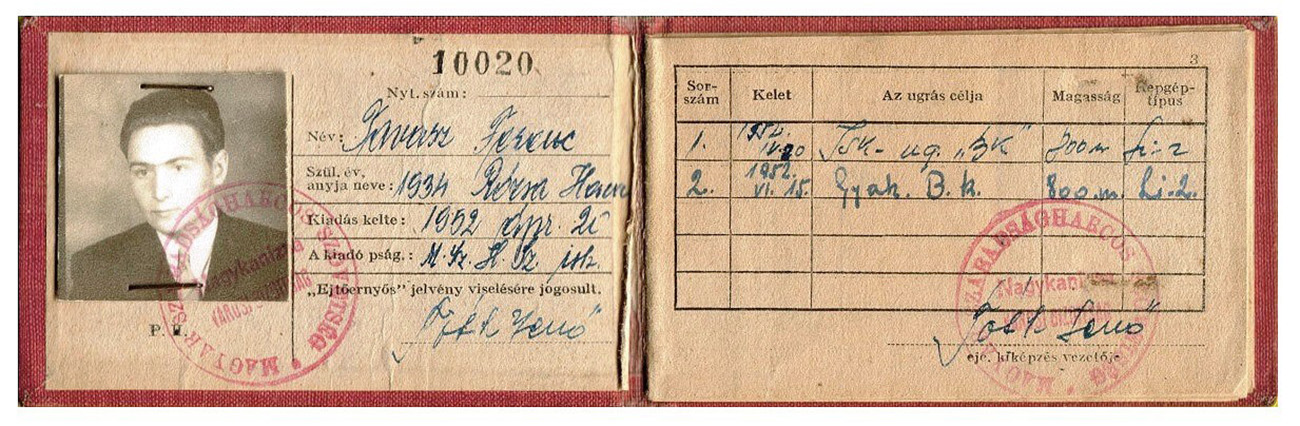 10020
Nyt. szám:
Név: Ferenc
Szül. év,
anyja neve: 1934 Rózsa
Kiadás kelte: 1952 ápr. 20
A kiadó pság.: M. Sz. H. Sz
„Ejtőernyős” jelvény viselésére jogosult.
Tóth Jenő
P. H.
MAGYAR SZABADSÁGHARCOS SZÖVETSÉG
Nagykanizsa
3
Sor-szám Kelet Az ugrás célja Magasság Repgép-típus
1. 1952. IV. 20 ug. „BK” 700 m Li-2
2. 1952. VI. 15. Gyak. B. k. 800 m. Li-2.
MAGYAR SZABADSÁGHARCOS SZÖVETSÉG
Nagykanizsa
Tóth Jenő
eje. kiképzés vezetője